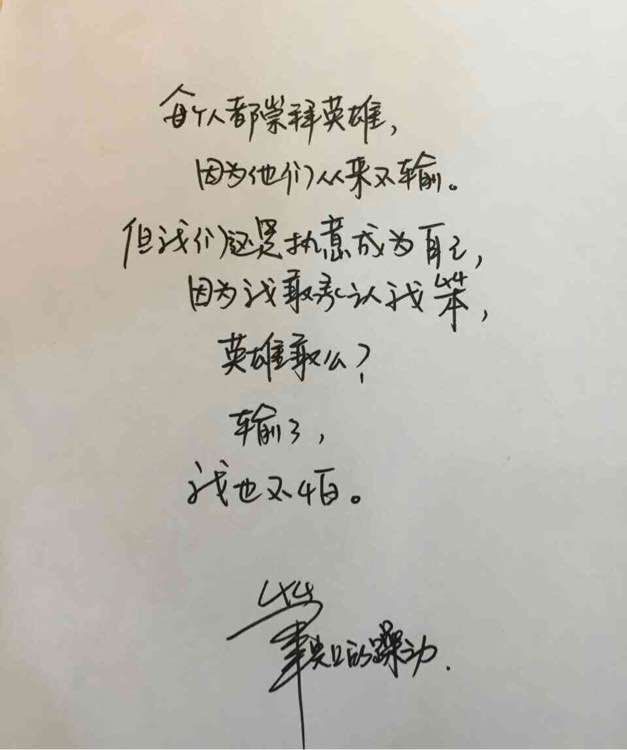 每个人都崇拜英雄，
因为他们从来不输。
但我们还是执意成为自己，
因为我敢承认我笨，
英雄敢么？
输了，
我也不怕。
笔尖的躁动.